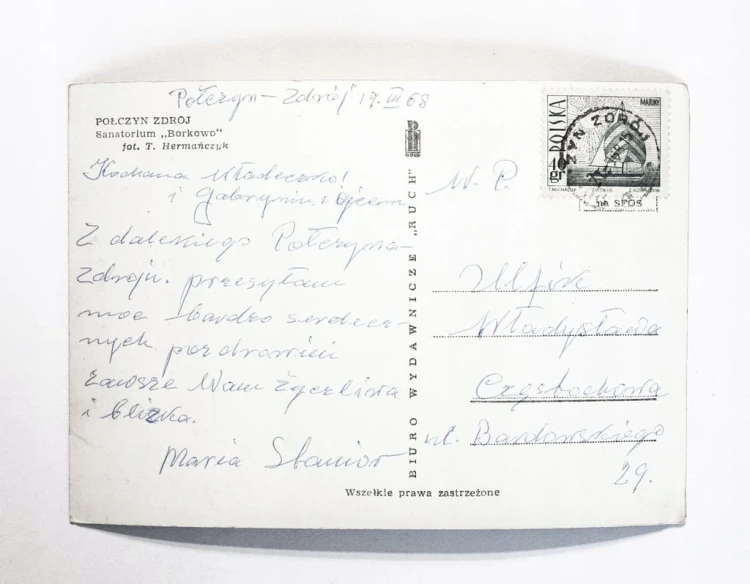 Połczyn-Zdrój 19.III 68
POŁCZYN ZDRÓJ
Sanatorium „Borkowo"
fot. T. Hermańczyk
Kochana Władeczko!
i z ojcem
Z dalekiego Połczyna-
Zdroju. przesyłam
moc bardzo serdecz-
nych pozdrowień
zawsze Wam życzliwa
i bliska.
Maria
BIURO WYDAWNICZE „RUCH"
POLSKA
40 gr
MARJKY
ZYN ZDRÓJ
na SFOS
W. P.
Ulfik
Władysława
Częstochowa
ul. Barłowskiego
29.
Wszelkie prawa zastrzeżone